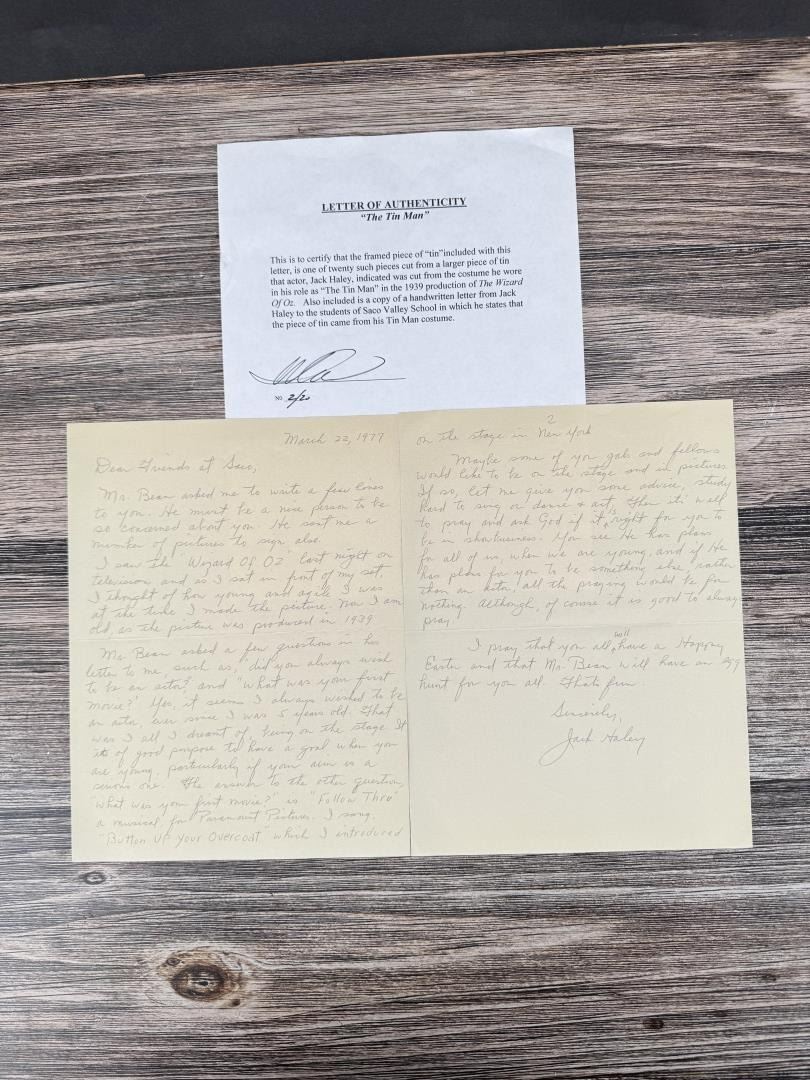 LETTER OF AUTHENTICITY
"The Tin Man"
This is to certify that the framed piece of "tin"included with this
letter, is one of twenty such pieces cut from a larger piece of tin
that actor, Jack Haley, indicated was cut from the costume he wore
in his role as "The Tin Man" in the 1939 production of The Wizard
Of Oz. Also included is a copy of a handwritten letter from Jack
Haley to the students of Saco Valley School in which he states that
the piece of tin came from his Tin Man costume.
No 2/20
March 22, 1977
Dear Friends at Saco,
Mr. Bean asked me to write a few lines
to you. He must be a nice person to be
so concerned about you. He sent me a
number of pictures to sign also.
I saw the "Wizard Of Oz" last night on
television and as I sat in front of my set,
I thought of how young and agile I was
at the time I made the picture. Now I am
old, as the picture was produced in 1939
Mr. Bean asked a few questions in his
letter to me, such as, "did you always wish
to be an actor?" and "What was your first
movie?" Yes, it seems I always wished to be
an actor, ever since I was 5 years old. That
was all I dreamt of, being on the stage. It
is of good purpose to have a goal when you
are young, particularly if your aim is a
serious one. The answer to the other question,
"What was your first movie?" is "Follow Thru"
a musical, for Paramount Pictures. I sang,
"Button Up Your Overcoat" which I introduced
2
on the stage in New York
Maybe some of you gals and fellows
would like to be on the stage and in pictures.
If so, let me give you some advice, study
hard to sing or dance & act, then it's well
to pray and ask God if it's right for you to
be in showbusiness. You see He has plans
for all of us, when we are young, and if He
has plans for you to be something else, rather
than an actor, all the praying would be for
nothing. Although, of course it is good to always
pray.
I pray that you all will have a Happy
Easter and that Mr. Bean will have an egg
hunt for you all. That's fun.
Sincerely,
Jack Haley